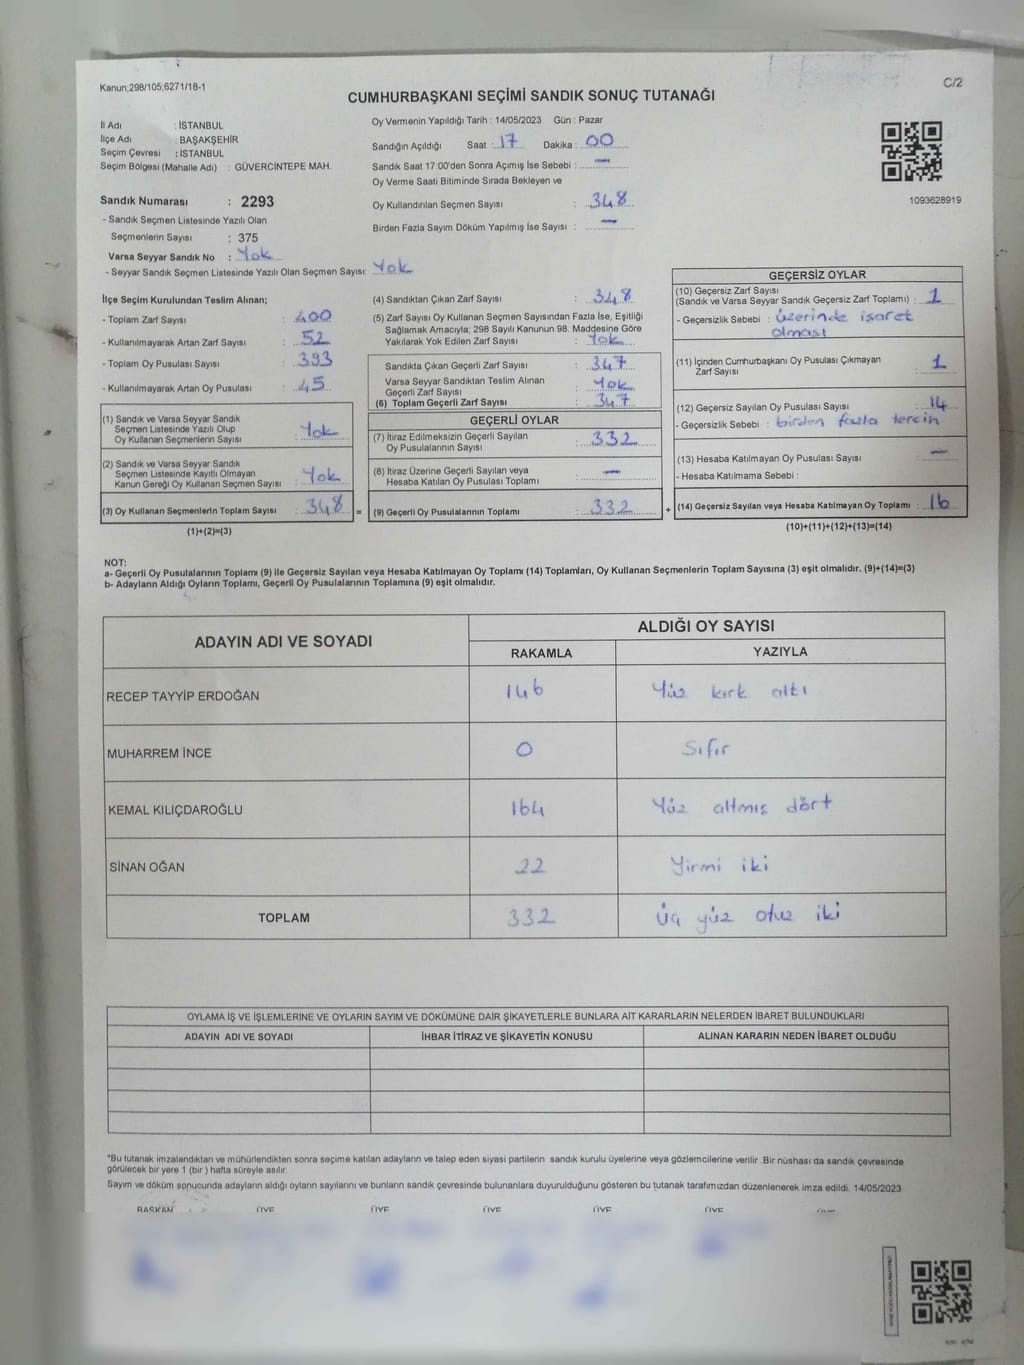 Kanun;298/105;6271/18-1
C/2
CUMHURBAŞKANI SEÇİMİ SANDIK SONUÇ TUTANAĞI
İl Adı : İSTANBUL
İlçe Adı : BAŞAKŞEHİR
Seçim Çevresi : İSTANBUL
Seçim Bölgesi (Mahalle Adı) : GÜVERCİNTEPE MAH.
Oy Vermenin Yapıldığı Tarih : 14/05/2023 Gün : Pazar
Sandığın Açıldığı Saat : 17 Dakika : 00
Sandık Saat 17:00'den Sonra Açımış İse Sebebi : —
Oy Verme Saati Bitiminde Sırada Bekleyen ve
Oy Kullandırılan Seçmen Sayısı : 348
Birden Fazla Sayım Döküm Yapılmış İse Sayısı : —
1093628919
Sandık Numarası : 2293
- Sandık Seçmen Listesinde Yazılı Olan
Seçmenlerin Sayısı : 375
Varsa Seyyar Sandık No : Yok
- Seyyar Sandık Seçmen Listesinde Yazılı Olan Seçmen Sayısı: Yok
İlçe Seçim Kurulundan Teslim Alınan;
- Toplam Zarf Sayısı : 400
- Kullanılmayarak Artan Zarf Sayısı : 52
- Toplam Oy Pusulası Sayısı : 393
- Kullanılmayarak Artan Oy Pusulası : 45
(1) Sandık ve Varsa Seyyar Sandık
Seçmen Listesinde Yazılı Olup
Oy Kullanan Seçmenlerin Sayısı : Yok
(2) Sandık ve Varsa Seyyar Sandık
Seçmen Listesinde Kayıtlı Olmayan
Kanun Gereği Oy Kullanan Seçmen Sayısı : Yok
(3) Oy Kullanan Seçmenlerin Toplam Sayısı : 348 =
(1)+(2)=(3)
(4) Sandıktan Çıkan Zarf Sayısı : 348
(5) Zarf Sayısı Oy Kullanan Seçmen Sayısından Fazla İse, Eşitliği
Sağlamak Amacıyla; 298 Sayılı Kanunun 98. Maddesine Göre
Yakılarak Yok Edilen Zarf Sayısı : Yok
Sandıkta Çıkan Geçerli Zarf Sayısı : 347
Varsa Seyyar Sandıktan Teslim Alınan
Geçerli Zarf Sayısı : Yok
(6) Toplam Geçerli Zarf Sayısı : 347
GEÇERLİ OYLAR
(7) İtiraz Edilmeksizin Geçerli Sayılan
Oy Pusulasının Sayısı : 332
(8) İtiraz Üzerine Geçerli Sayılan veya
Hesaba Katılan Oy Pusulası Toplamı : —
(9) Geçerli Oy Pusulalarının Toplamı : 332 +
GEÇERSİZ OYLAR
(10) Geçersiz Zarf Sayısı
(Sandık ve Varsa Seyyar Sandık Geçersiz Zarf Toplamı) : 1
- Geçersizlik Sebebi : üzerinde işaret
olması
(11) İçinden Cumhurbaşkanı Oy Pusulası Çıkmayan
Zarf Sayısı : 1
(12) Geçersiz Sayılan Oy Pusulası Sayısı : 14
- Geçersizlik Sebebi : birden fazla tercih
(13) Hesaba Katılmayan Oy Pusulası Sayısı : —
- Hesaba Katılmama Sebebi :
(14) Geçersiz Sayılan veya Hesaba Katılmayan Oy Toplamı : 16
(10)+(11)+(12)+(13)=(14)
NOT:
a- Geçerli Oy Pusulalarının Toplamı (9) ile Geçersiz Sayılan veya Hesaba Katılmayan Oy Toplamı (14) Toplamları, Oy Kullanan Seçmenlerin Toplam Sayısına (3) eşit olmalıdır. (9)+(14)=(3)
b- Adayların Aldığı Oyların Toplamı, Geçerli Oy Pusulalarının Toplamına (9) eşit olmalıdır.
ADAYIN ADI VE SOYADI ALDIĞI OY SAYISI
RAKAMLA YAZIYLA
RECEP TAYYİP ERDOĞAN 146 Yüz kırk altı
MUHARREM İNCE 0 Sıfır
KEMAL KILIÇDAROĞLU 164 Yüz altmış dört
SİNAN OĞAN 22 Yirmi iki
TOPLAM 332 Üç yüz otuz iki
OYLAMA İŞ VE İŞLEMLERİNE VE OYLARIN SAYIM VE DÖKÜMÜNE DAİR ŞİKAYETLERLE BUNLARA AİT KARARLARIN NELERDEN İBARET BULUNDUKLARI
ADAYIN ADI VE SOYADI İHBAR İTİRAZ VE ŞİKAYETİN KONUSU ALINAN KARARIN NEDEN İBARET OLDUĞU
*Bu tutanak imzalandıktan ve mühürlendikten sonra seçime katılan adayların ve talep eden siyasi partilerin sandık kurulu üyelerine veya gözlemcilerine verilir. Bir nüshası da sandık çevresinde
görülecek bir yere 1 (bir ) hafta süreyle asılır.
Sayım ve döküm sonucunda adayların aldığı oyların sayılarını ve bunların sandık çevresinde bulunanlara duyurulduğunu gösteren bu tutanak tarafımızdan düzenlenerek imza edildi. 14/05/2023
BAŞKAN ÜYE ÜYE ÜYE ÜYE ÜYE